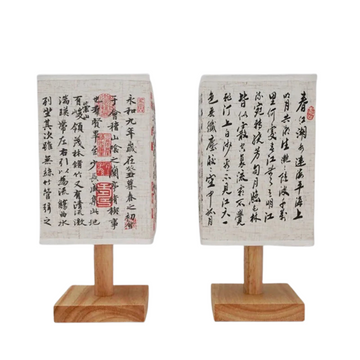 永和九年歲在癸丑暮春之初
會稽山陰之蘭亭脩稧事
也群賢畢至少長咸集此地
崇山
有峻領茂林脩竹又有清流激
湍暎帶左右引以為流觴曲水
列坐其次雖無絲竹管絃之
春江潮水連海平海上
明月共潮生灩灩隨波千萬
里何處春江無月明江
流宛轉繞芳甸月照花林
皆似霰空裏流霜不覺
飛汀上白沙看不見江天一
色無纖塵皎皎空中孤月